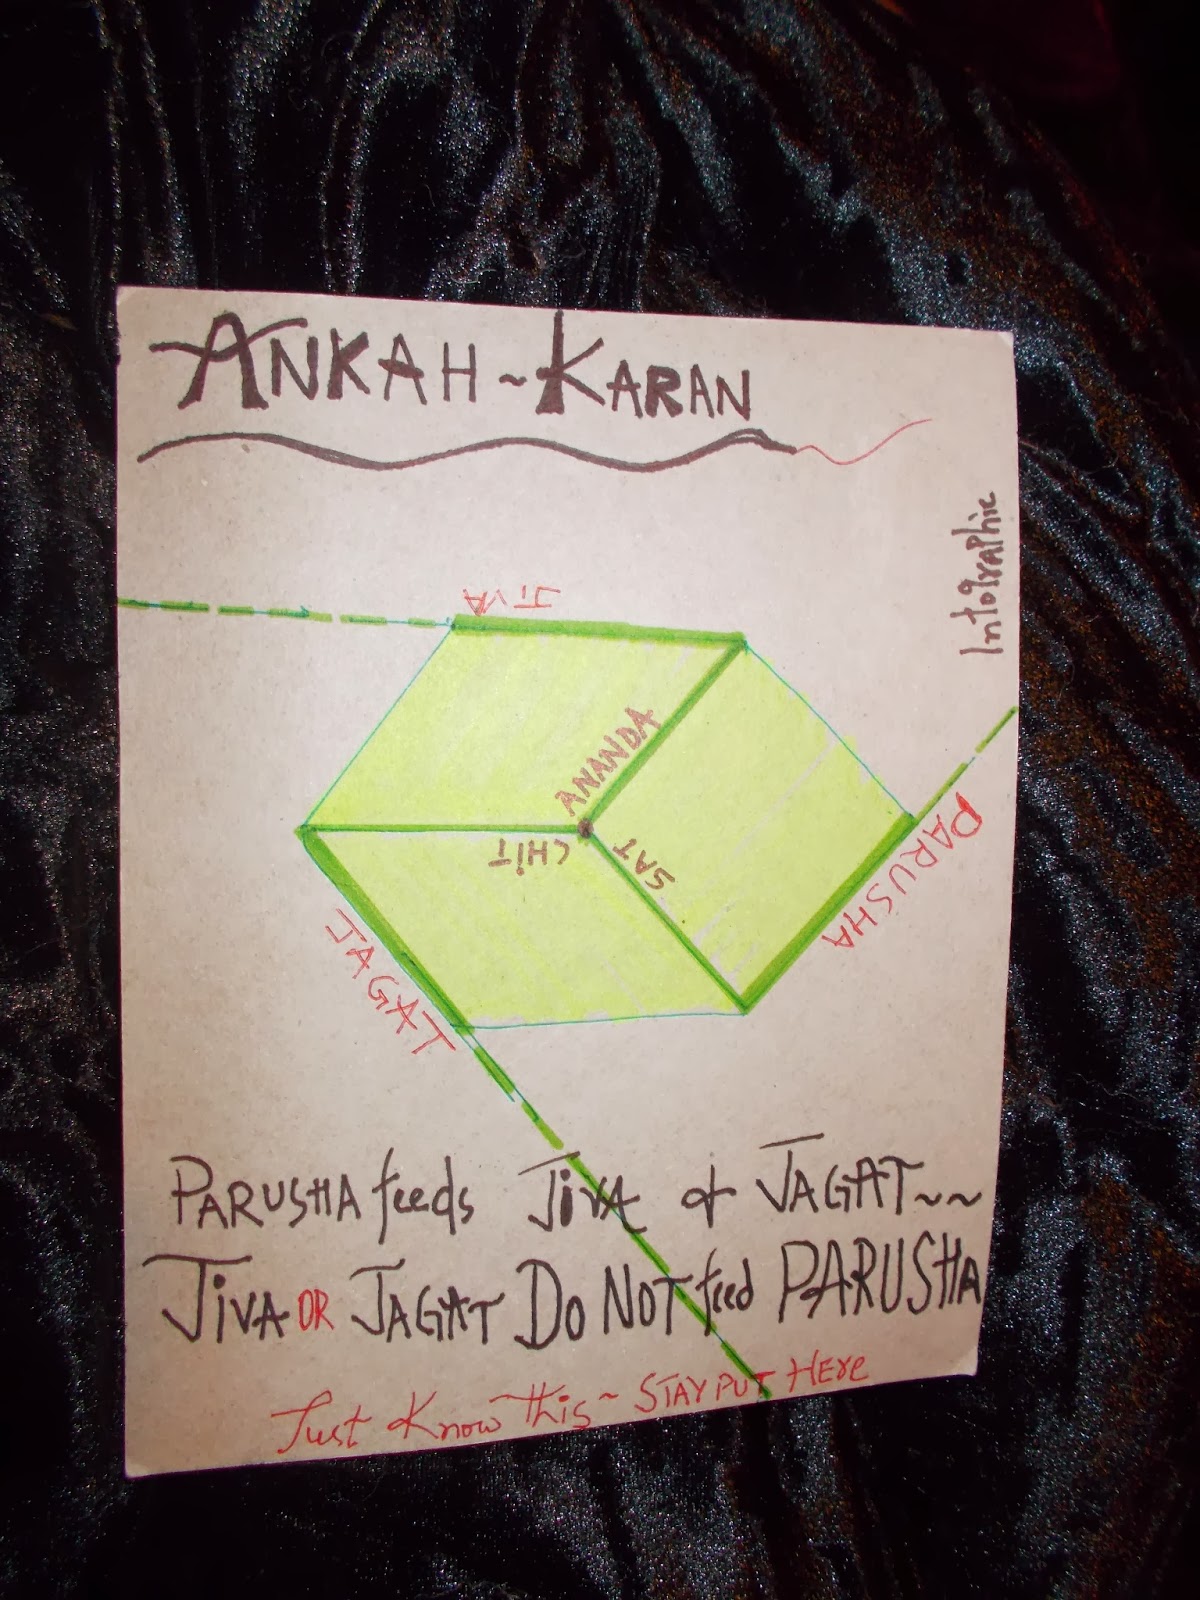 ANKAH ~ KARAN
Intographic
JIVA
ANANDA
CHIT
SAT
PARUSHA
JAGAT
PARUSHA feeds JIVA & JAGAT ~~
JIVA OR JAGAT DO NOT feed PARUSHA
Just Know This ~ STAY PUT HERE